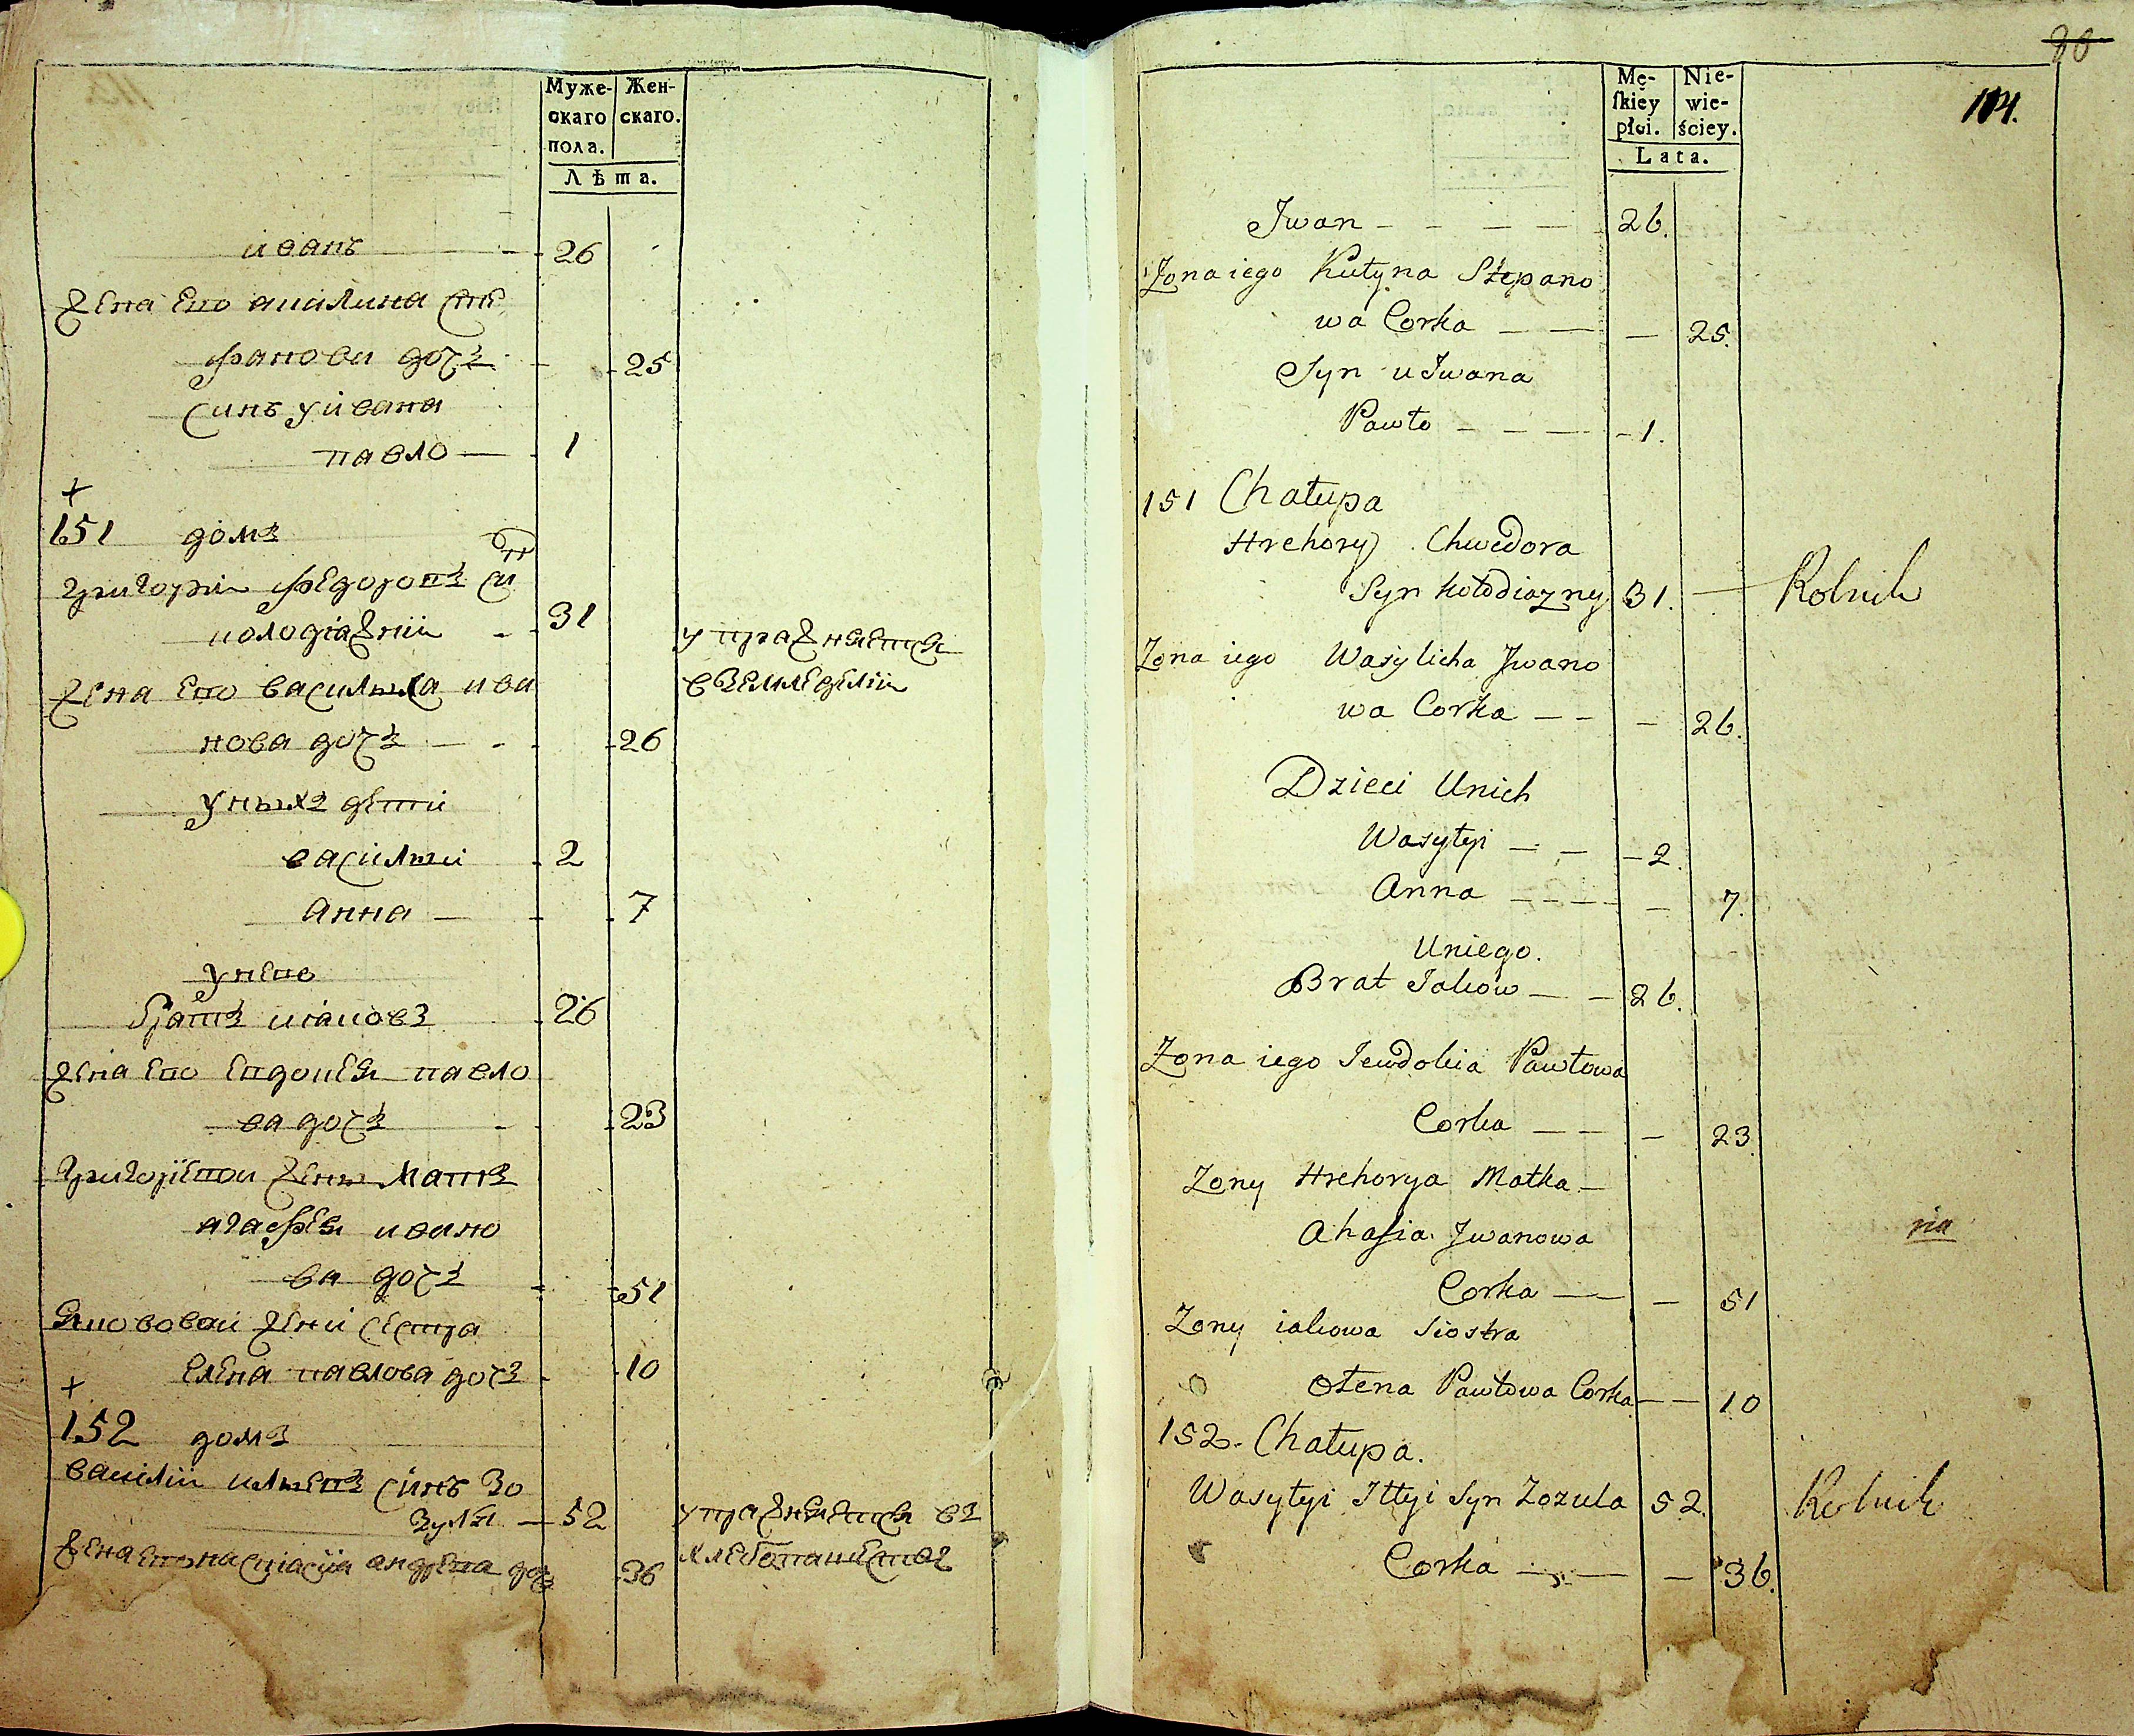 Муже-
скаго
пола.
Жен-
скаго.
Лѣта.
иванъ — 26
жена его акилина сте
фанова дочъ — 25
синъ у ивана
павло — 1
+
151 домъ
григорiи федоровъ сн
колодiажнiи — 31
упражняется
в земледелiи
жена его василыха ива
нова дочъ — 26
у ныхъ дети
васiлыи 2
анна — 7
у него
братъ иаковъ 26
жена его евдокея павло
ва дочъ 23
григорiевои жены матъ
агафея ивано
ва дочъ 51
яковovои жени сестра
елена павлова дочъ 10
+
152 домъ
василiи илыевъ синъ зо
зуля — 52
упражняется въ
хлебопашествѣ
жена его настасiя андреева дочъ 36
90
114.
Mę-
ſkiey
płci.
Nie-
wie-
ściey.
Lata.
Jwan — — — — 26.
Zona iego Kulyna Stepano
wa Corka — — — 25.
Syn u Jwana
Pawło — — — — 1.
151 Chałupa
Hrehory Chwedora
Syn Kołodiazny 31. — Rolnik
Zona iego Wasylicha Jwano
wa Corka — — — 26.
Dzieci Unich
Wasylyi — — — 2.
Anna — — — — — 7.
Uniego.
Brat Jakow — — 26.
Zona iego Jewdokia Pawłowa
Corka — — — 23.
Zony Hrehorya Matka —
Ahafia Jwanowa
nia
Corka — — — 51
Zony iakowa Siostra
Ołena Pawłowa Corka — — 10
152. Chałupa.
Wasylyi Jlłyi Syn Zozula 52. Rolnik
Corka — — — 36.